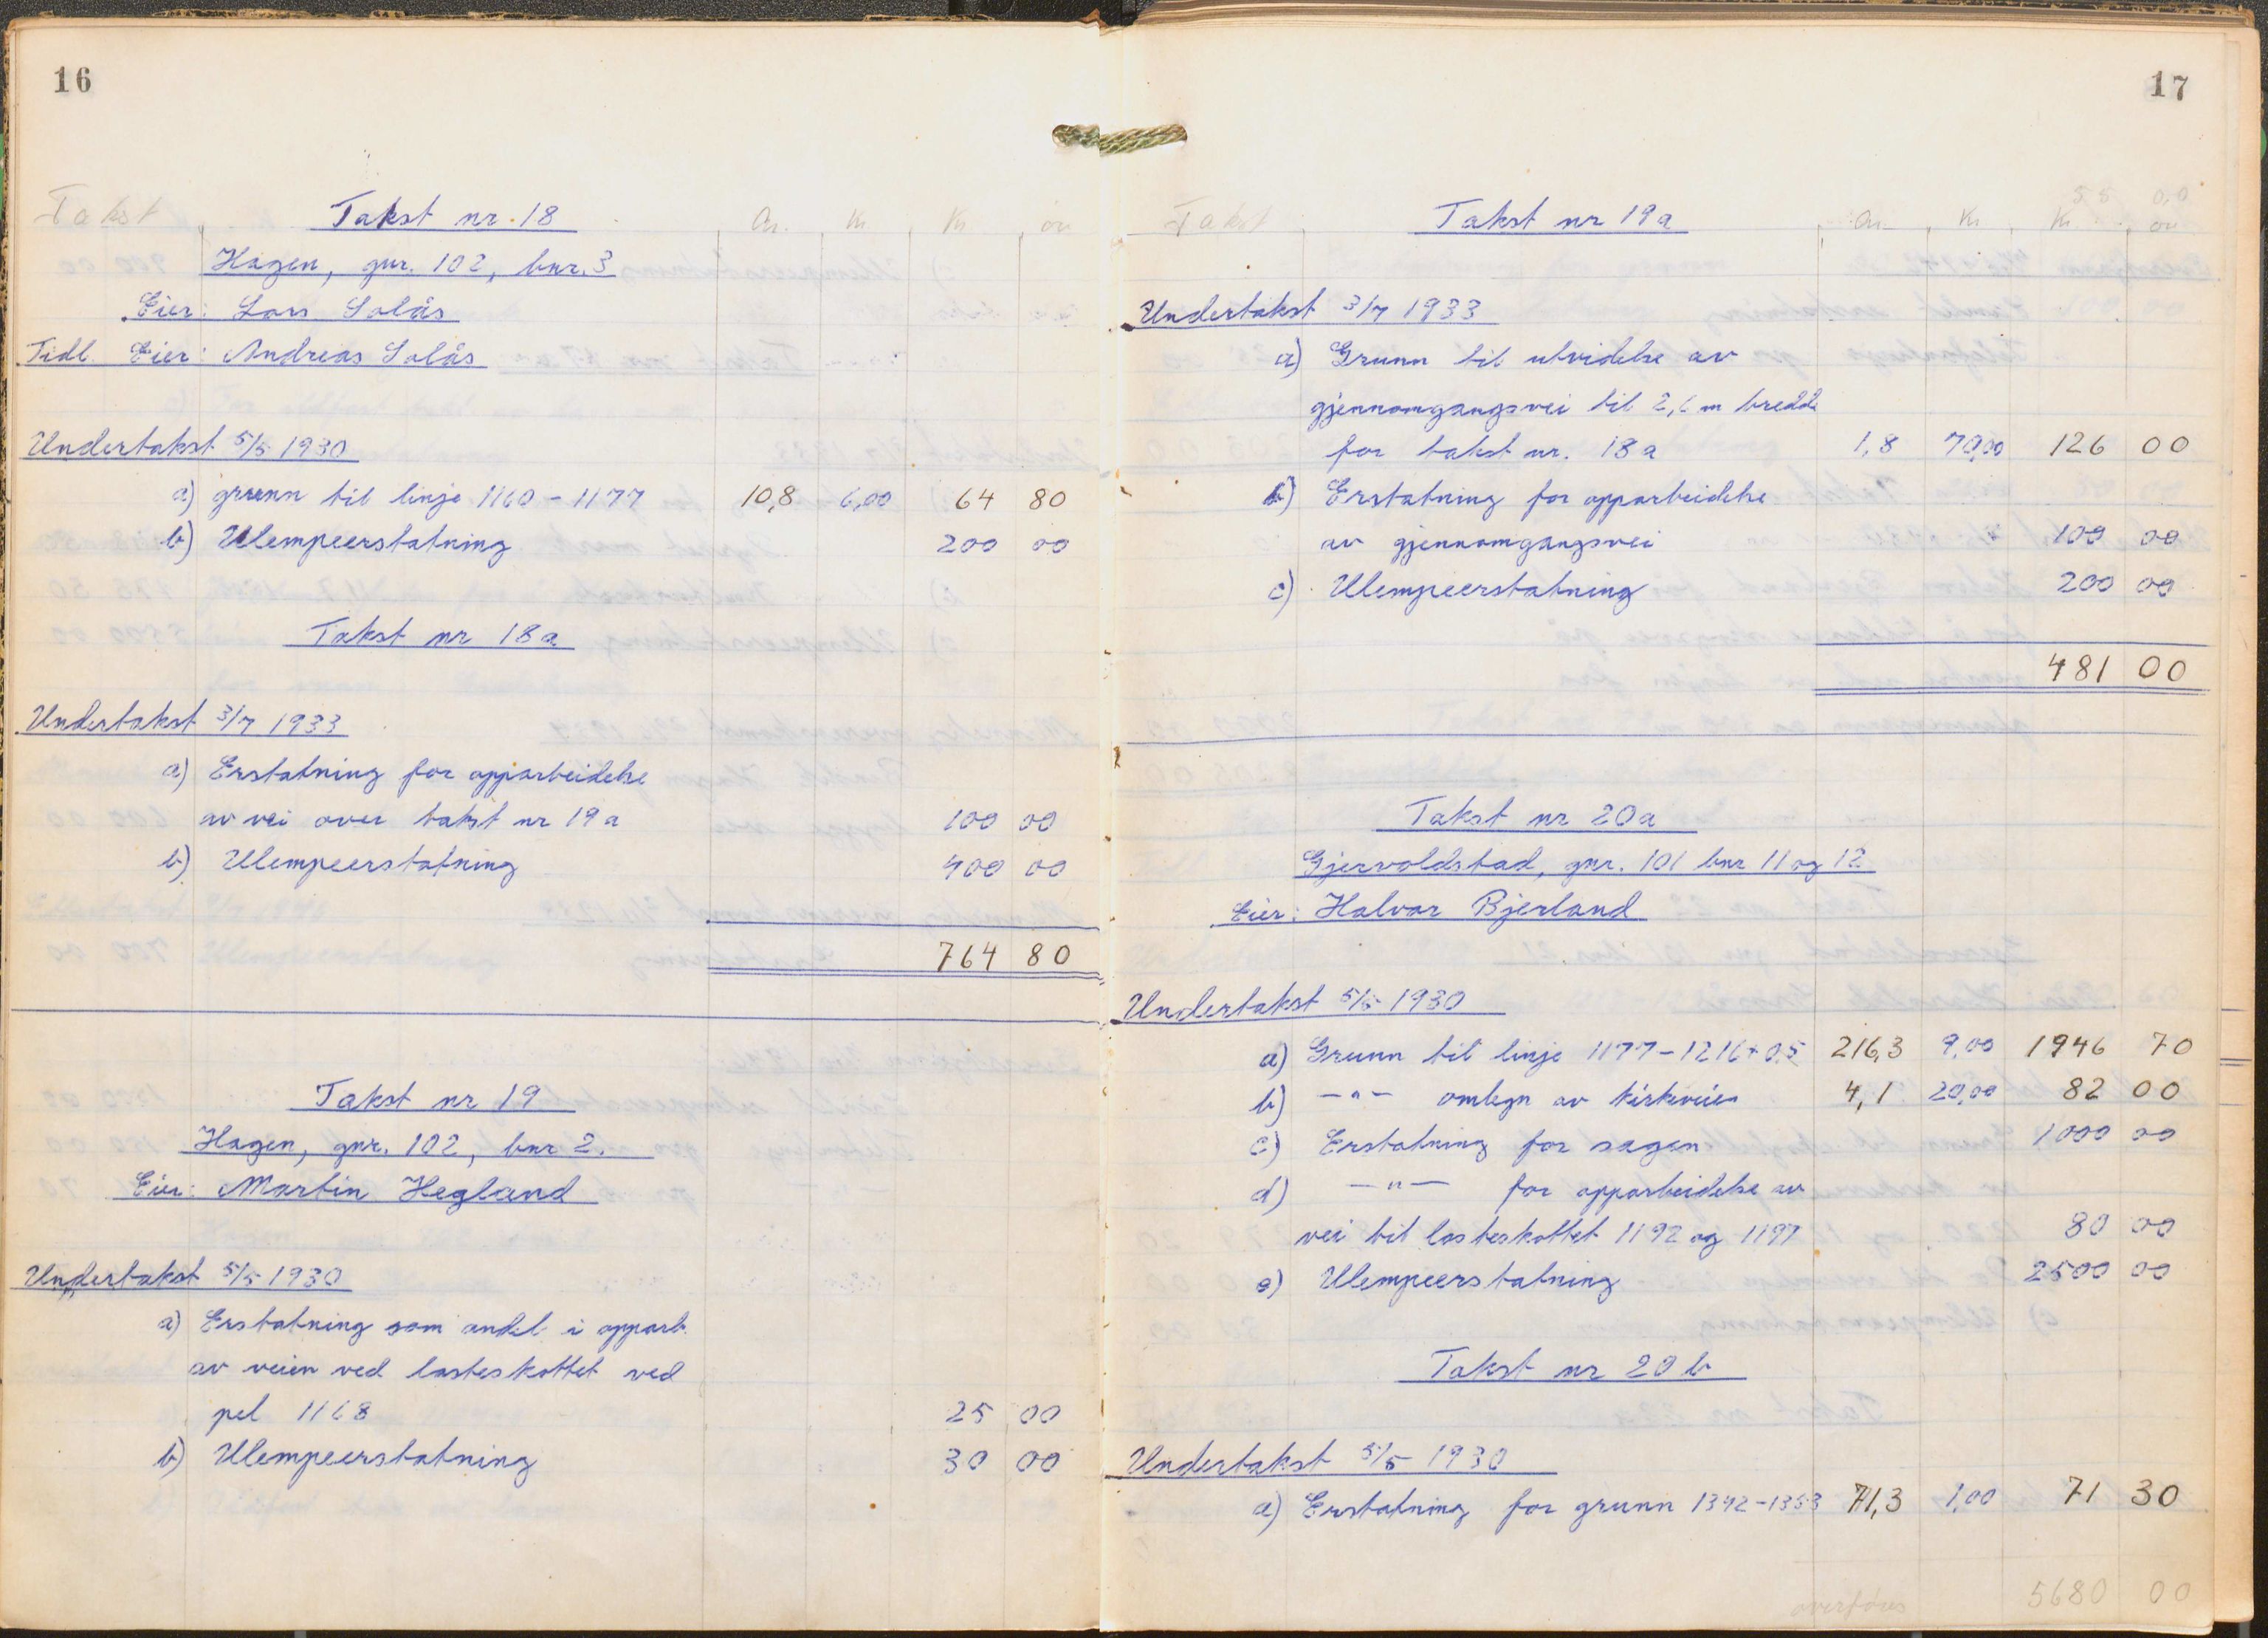 16
Takst Takst nr. 18 Ar. Kr Kr ør
Hagen, gnr. 102, bnr. 3
Eier: Lars Solås
Tidl. Eier: Andreas Solås
Undertakst 5/5 1930
a) grunn til linje 1160 - 1177 10,8 6,00 64 80
b) Ulempeerstatning 200 00
Takst nr 18a
Undertakst 3/7 1933
a) Erstatning for opparbeidelse
av vei over takst nr 19a 100 00
b) Ulempeerstatning 400 00
764 80
Takst nr 19
Hagen, gnr. 102, bnr 2.
Eier: Martin Hegland
Undertakst 5/5 1930
a) Erstatning som andel i opparb.
av veien ved lasteskottet ved
pel 1168 25 00
b) Ulempeerstatning 30 00
17
55 00
Takst Takst nr 19a Ar. Kr Kr ør
Undertakst 3/7 1933
a) Grunn til utvidelse av
gjennomgangsvei til 2,6 m bredde
for takst nr. 18a 1,8 70,00 126 00
b) Erstatning for opparbeidelse
av gjennomgangsvei 100 00
c) Ulempeerstatning 200 00
481 00
Takst nr 20a
Gjervoldstad, gnr. 101 bnr 11 og 12
Eier: Halvar Bjerland
Undertakst 5/5 1930
a) Grunn til linje 1177-1216+0,5 216,3 9,00 1946 70
b) -"- omlegn av kirkeveien 4,1 20,00 82 00
c) Erstatning for sagen 1000 00
d) -"- for opparbeidelse av
vei til lasteskottet 1192 og 1197 80 00
e) Ulempeerstatning 2500 00
Takst nr 20b
Undertakst 5/5 1930
a) Erstatning for grunn 1342-1353 71,3 1,00 71 30
overføres 5680 00